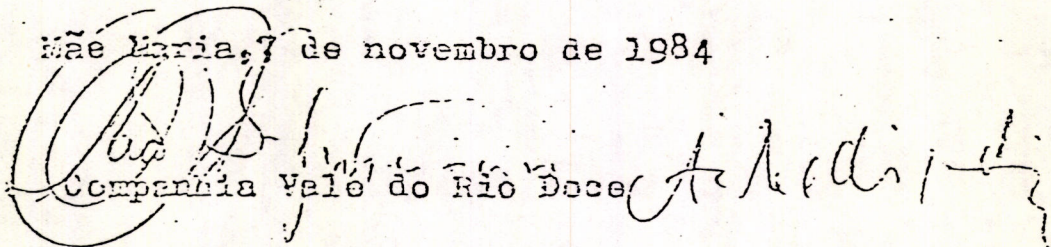 Mãe Maria,7 de novembro de 1984
Companhia Vale do Rio Doce